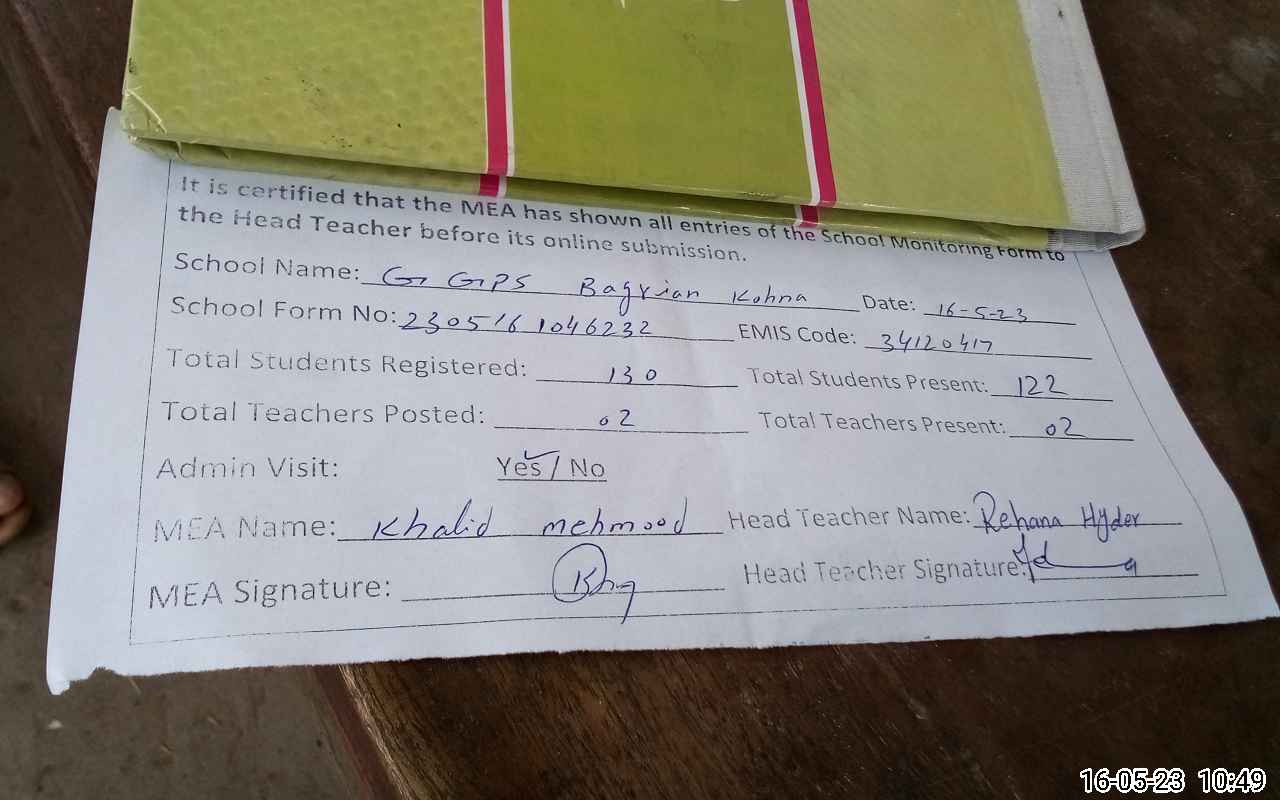 It is certified that the MEA has shown all entries of the School Monitoring Form to
the Head Teacher before its online submission.
School Name: G GPS Bagrian Kohna Date: 16-5-23
School Form No: 2305161046232 EMIS Code: 34120417
Total Students Registered: 130 Total Students Present: 122
Total Teachers Posted: 02 Total Teachers Present: 02
Admin Visit: Yes / No
MEA Name: Khalid mehmood Head Teacher Name: Rehana Hyder
MEA Signature: Head Teacher Signature:
16-05-23 10:49